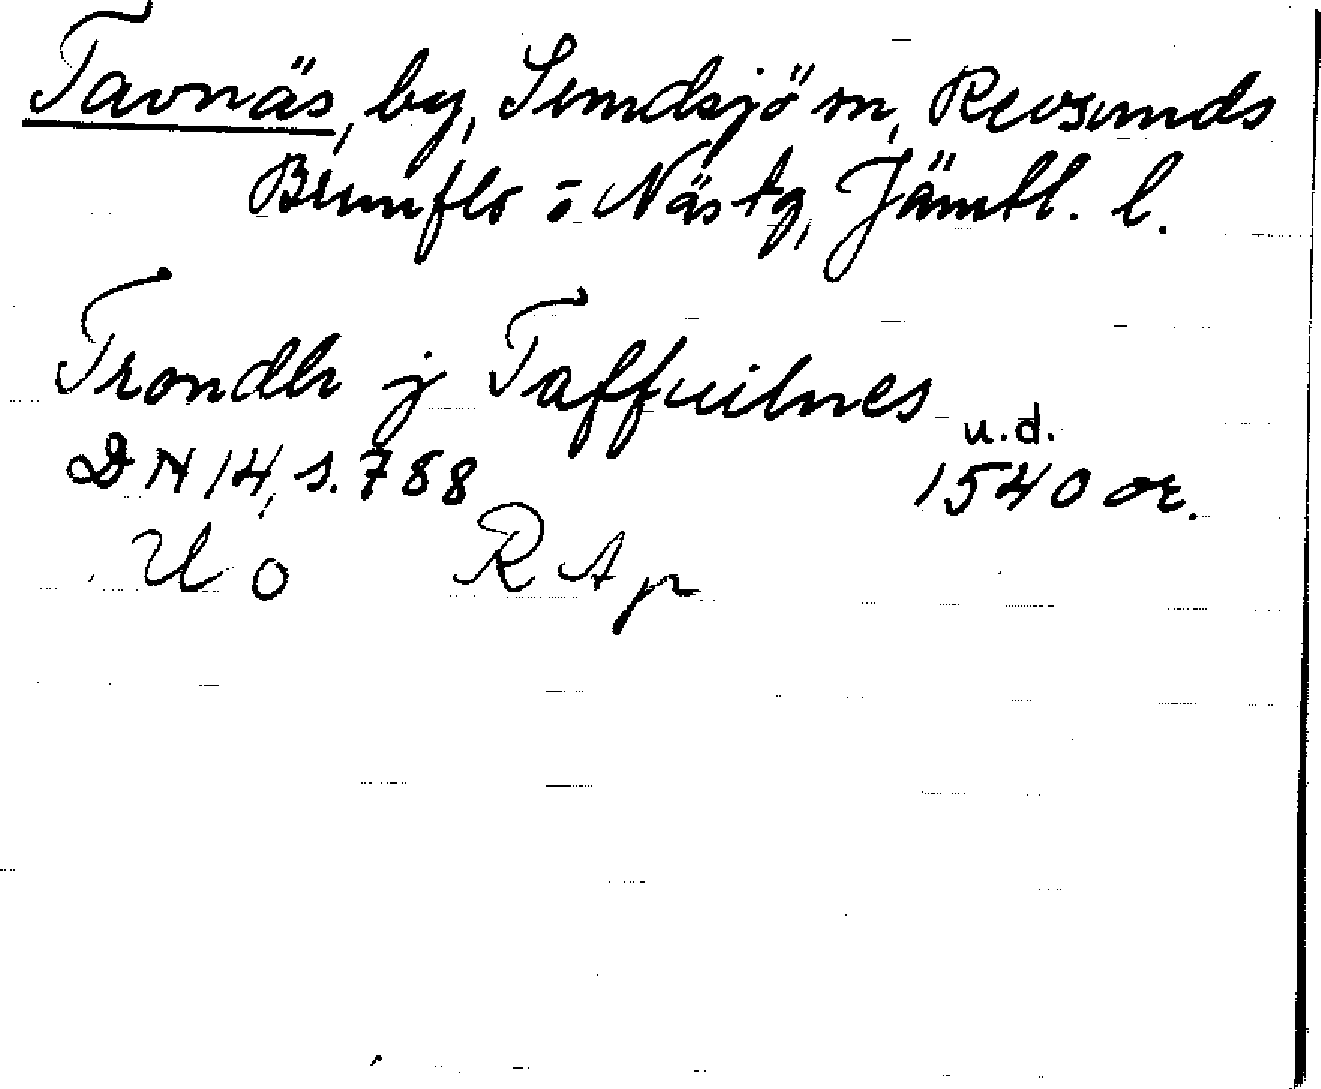 Tavnäs, by, Sundsjö sn, Revsunds
Brunflo o Näs tg, Jämtl. l.
Trondh j Taffuilnes
u.d.
DN 14, s. 788 1540 or.
U o R A jr